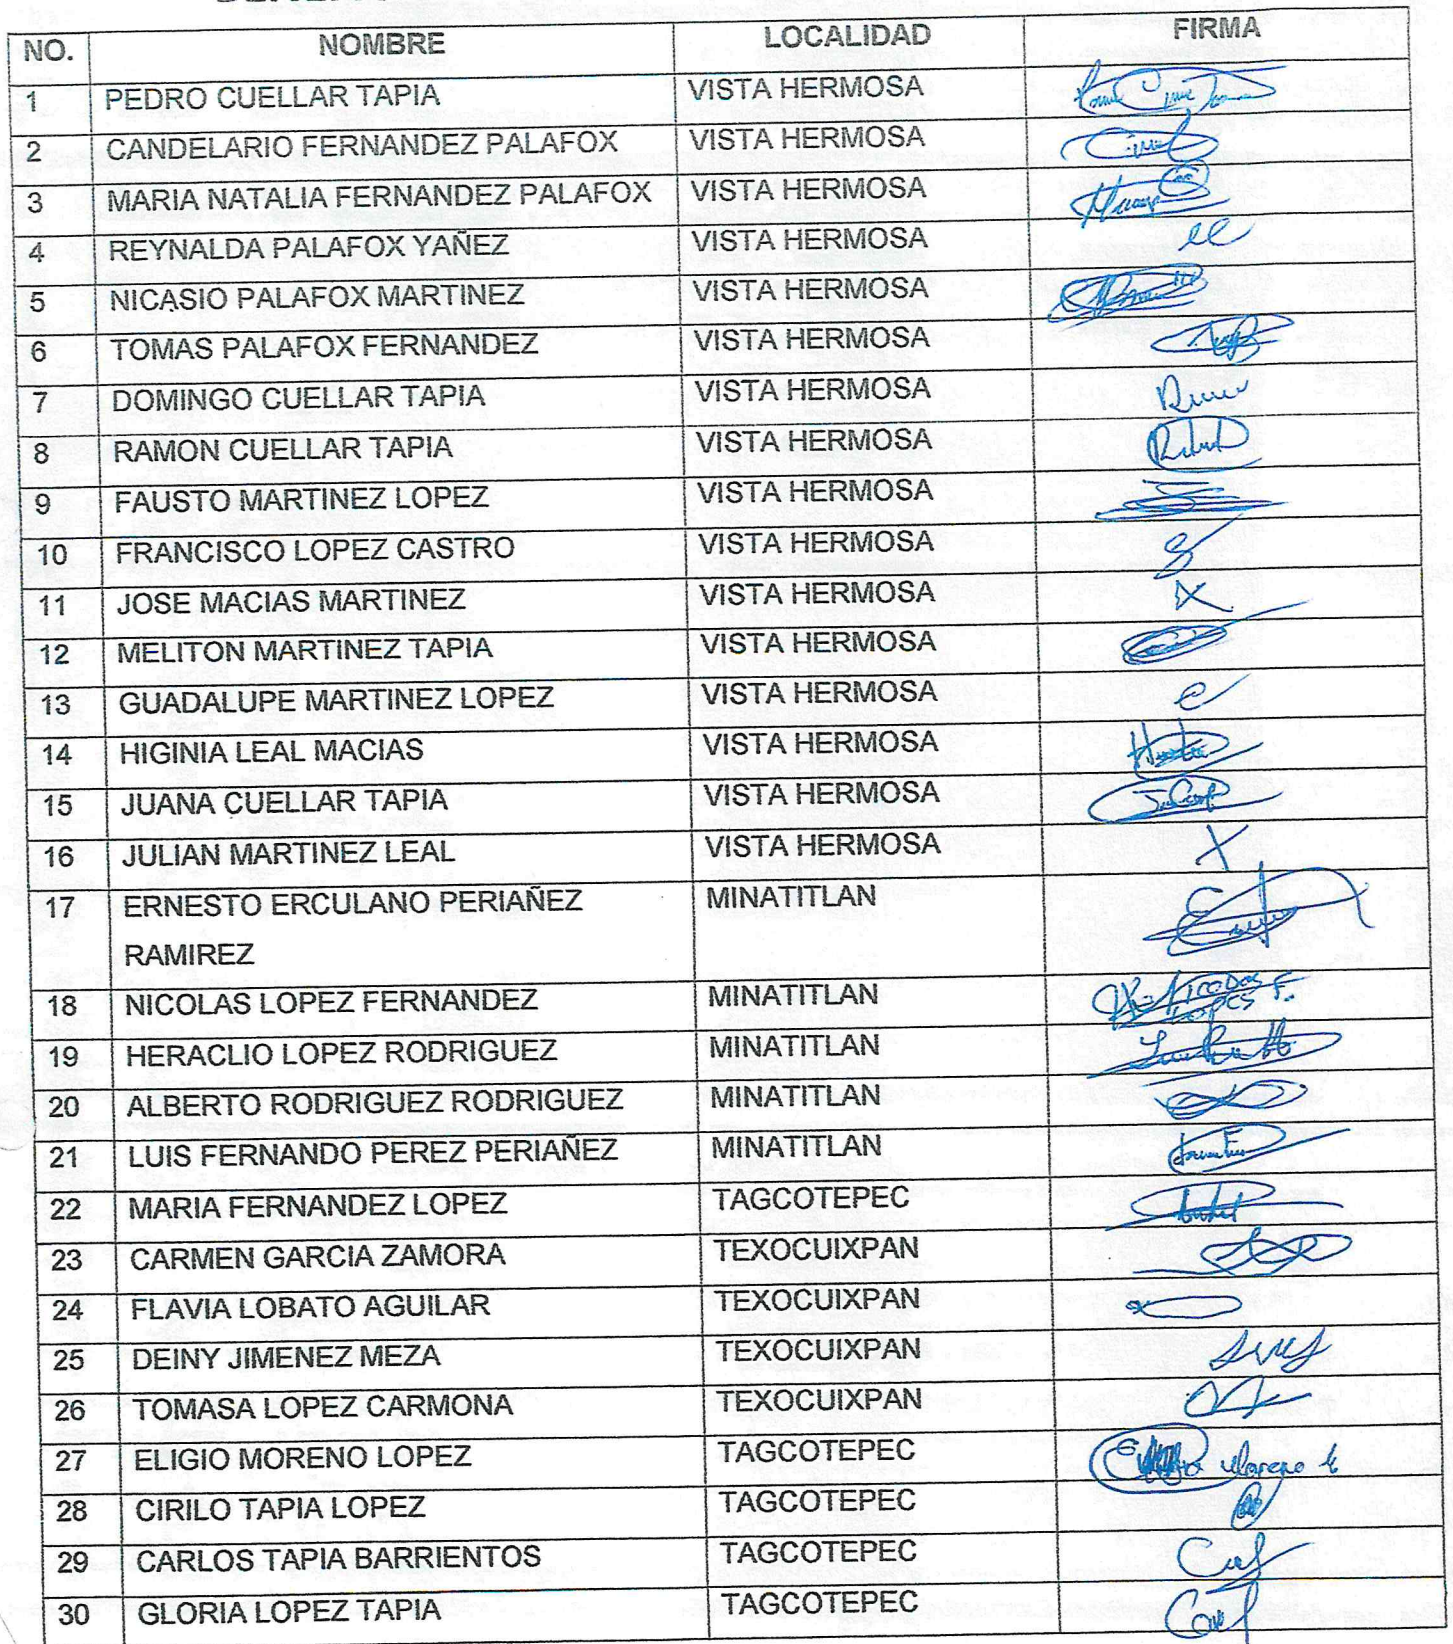 NO. NOMBRE LOCALIDAD FIRMA
1 PEDRO CUELLAR TAPIA VISTA HERMOSA
2 CANDELARIO FERNANDEZ PALAFOX VISTA HERMOSA
3 MARIA NATALIA FERNANDEZ PALAFOX VISTA HERMOSA
4 REYNALDA PALAFOX YAÑEZ VISTA HERMOSA
5 NICASIO PALAFOX MARTINEZ VISTA HERMOSA
6 TOMAS PALAFOX FERNANDEZ VISTA HERMOSA
7 DOMINGO CUELLAR TAPIA VISTA HERMOSA
8 RAMON CUELLAR TAPIA VISTA HERMOSA
9 FAUSTO MARTINEZ LOPEZ VISTA HERMOSA
10 FRANCISCO LOPEZ CASTRO VISTA HERMOSA
11 JOSE MACIAS MARTINEZ VISTA HERMOSA
12 MELITON MARTINEZ TAPIA VISTA HERMOSA
13 GUADALUPE MARTINEZ LOPEZ VISTA HERMOSA
14 HIGINIA LEAL MACIAS VISTA HERMOSA
15 JUANA CUELLAR TAPIA VISTA HERMOSA
16 JULIAN MARTINEZ LEAL VISTA HERMOSA X
17 ERNESTO ERCULANO PERIAÑEZ MINATITLAN
RAMIREZ
18 NICOLAS LOPEZ FERNANDEZ MINATITLAN
19 HERACLIO LOPEZ RODRIGUEZ MINATITLAN
20 ALBERTO RODRIGUEZ RODRIGUEZ MINATITLAN
21 LUIS FERNANDO PEREZ PERIAÑEZ MINATITLAN
22 MARIA FERNANDEZ LOPEZ TAGCOTEPEC
23 CARMEN GARCIA ZAMORA TEXOCUIXPAN
24 FLAVIA LOBATO AGUILAR TEXOCUIXPAN
25 DEINY JIMENEZ MEZA TEXOCUIXPAN
26 TOMASA LOPEZ CARMONA TEXOCUIXPAN
27 ELIGIO MORENO LOPEZ TAGCOTEPEC
28 CIRILO TAPIA LOPEZ TAGCOTEPEC
29 CARLOS TAPIA BARRIENTOS TAGCOTEPEC
30 GLORIA LOPEZ TAPIA TAGCOTEPEC